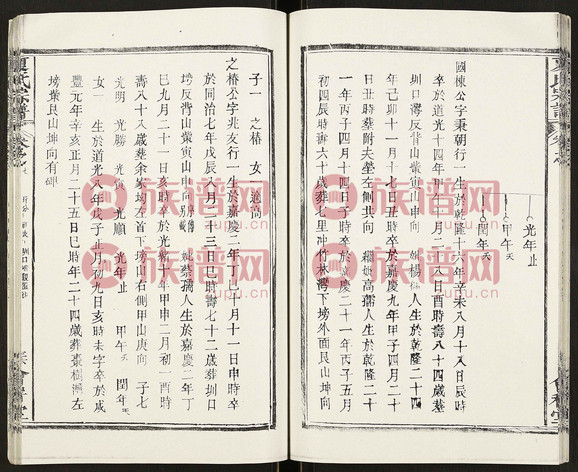 光年止
甲午夭
閏年夭
國棟公字秉朝行一生於乾隆十六年辛未八月十八日辰時
卒於道光十四年甲午十月二十八日酉時壽八十四歲塟
圳口灣反背山業寅山申向
年己卯十月十七日丑時卒於嘉慶九年甲子十月三十
日丑時葬附夫塋左側共向
繼娶高孺人生於乾隆二十
一年丙子四月十四日子時卒於嘉慶二十一年丙子五月
初四辰時壽六十歲葬七里冲竹林灣下塝外面艮山坤向
子一
之椿
女
適尚
之椿公字兆友行一生於嘉慶二年丁巳十月十一日申時卒
於同治七年戊辰八月二十三日巳時壽七十二歲葬圳口
塆反背山業寅山申向
娶蔡孺人生於嘉慶二年丁
巳九月二十一日亥時卒於光緒十年甲申二月初一酉時
壽八十八歲葬余家塆左首下塝山右側甲山庚向
子七
光明
光勝
光寅
光順
光年止
甲午夭
閏年夭
女一
生於道光八年戊子正月初九日亥時未字卒於咸
豐元年辛亥正月二十五日巳時年二十四歲葬棗樹灣左
塝葉艮山坤向有碑
族谱网
www.zupu.cn